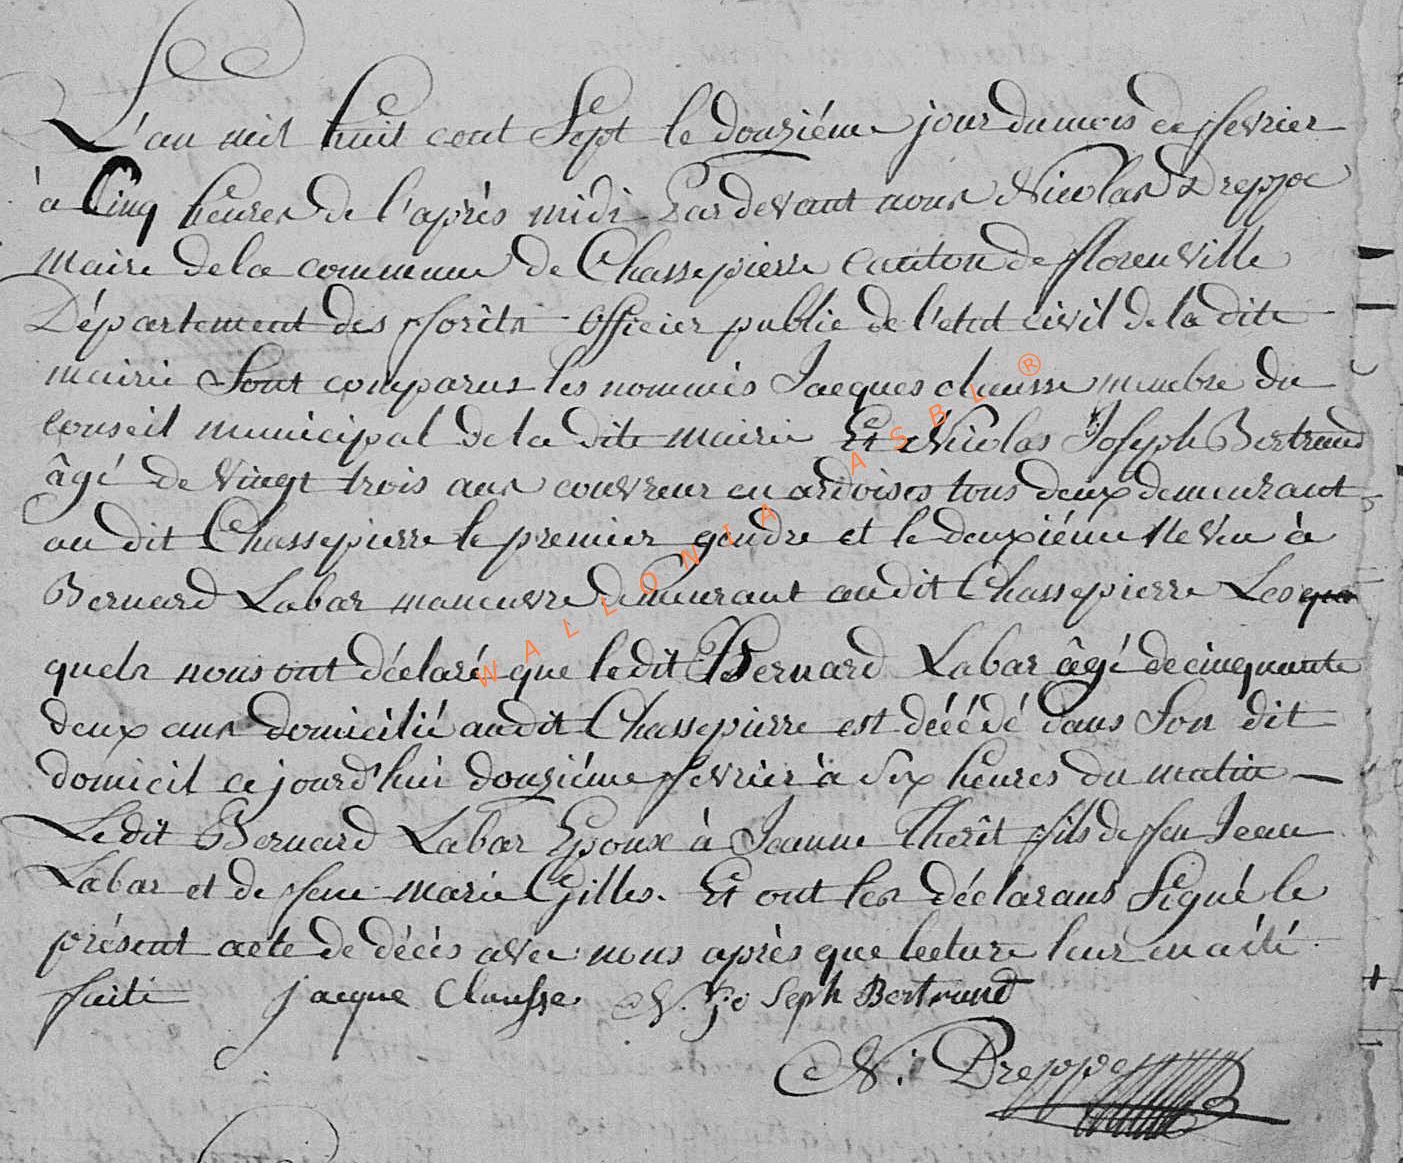 L'an mil huit cent Sept le douziéme jour du mois de ffevrier
à Cinq heures de l'après midi Pardevant nous Nicolas Dreppe
maire dela commune de Chassepierre canton de fflorenville
Département des fforêts officier public de l'etat civil dela dite
mairie Sont comparus les nommés Jacques clausse membre du
conseil municipal dela dite mairie Et Nicolas Joseph Bertrand
âgé de vingt trois ans couvreur en ardoises tous deux demeurant
au dit Chassepierre le premier gendre et le deuxiéme Neveu à
Bernard Labar maneuvre demeurant audit Chassepierre Les
quels nous ont déclaré que ledit Bernard Labar âgé de cinquante
deux ans domicilié audit Chassepierre est décédé dans Son dit
domicil cejourd'hui douziéme ffevrier à Six heures du matin —
Ledit Bernard Labar Epoux à Jeanne Therêt ffils de ffeu Jean
Labar et de ffeue marie Gilles. Et ont les déclarans Signé le
présent acte de décès avec nous après que lecture leur en a été
ffaite jacque Clausse N. Jo Seph Bertrand
N. Dreppe
WALLONIA ASBL ®